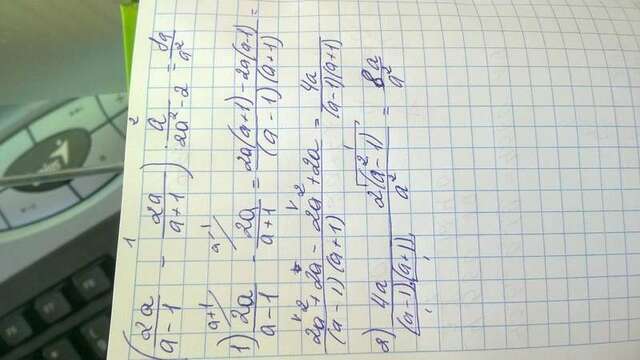 1 2
(2a/(a-1) - 2a/(a+1)) : a/(2a²-2) = 8a/a²
a+1 a-1
1) 2a/(a-1) - 2a/(a+1) = (2a(a+1) - 2a(a-1))/((a-1)(a+1)) =
(2a²+2a - 2a²+2a)/((a-1)(a+1)) = 4a/((a-1)(a+1))
2) 4a/((a-1)(a+1)) · 2(a²-1)/a² = 8a/a²